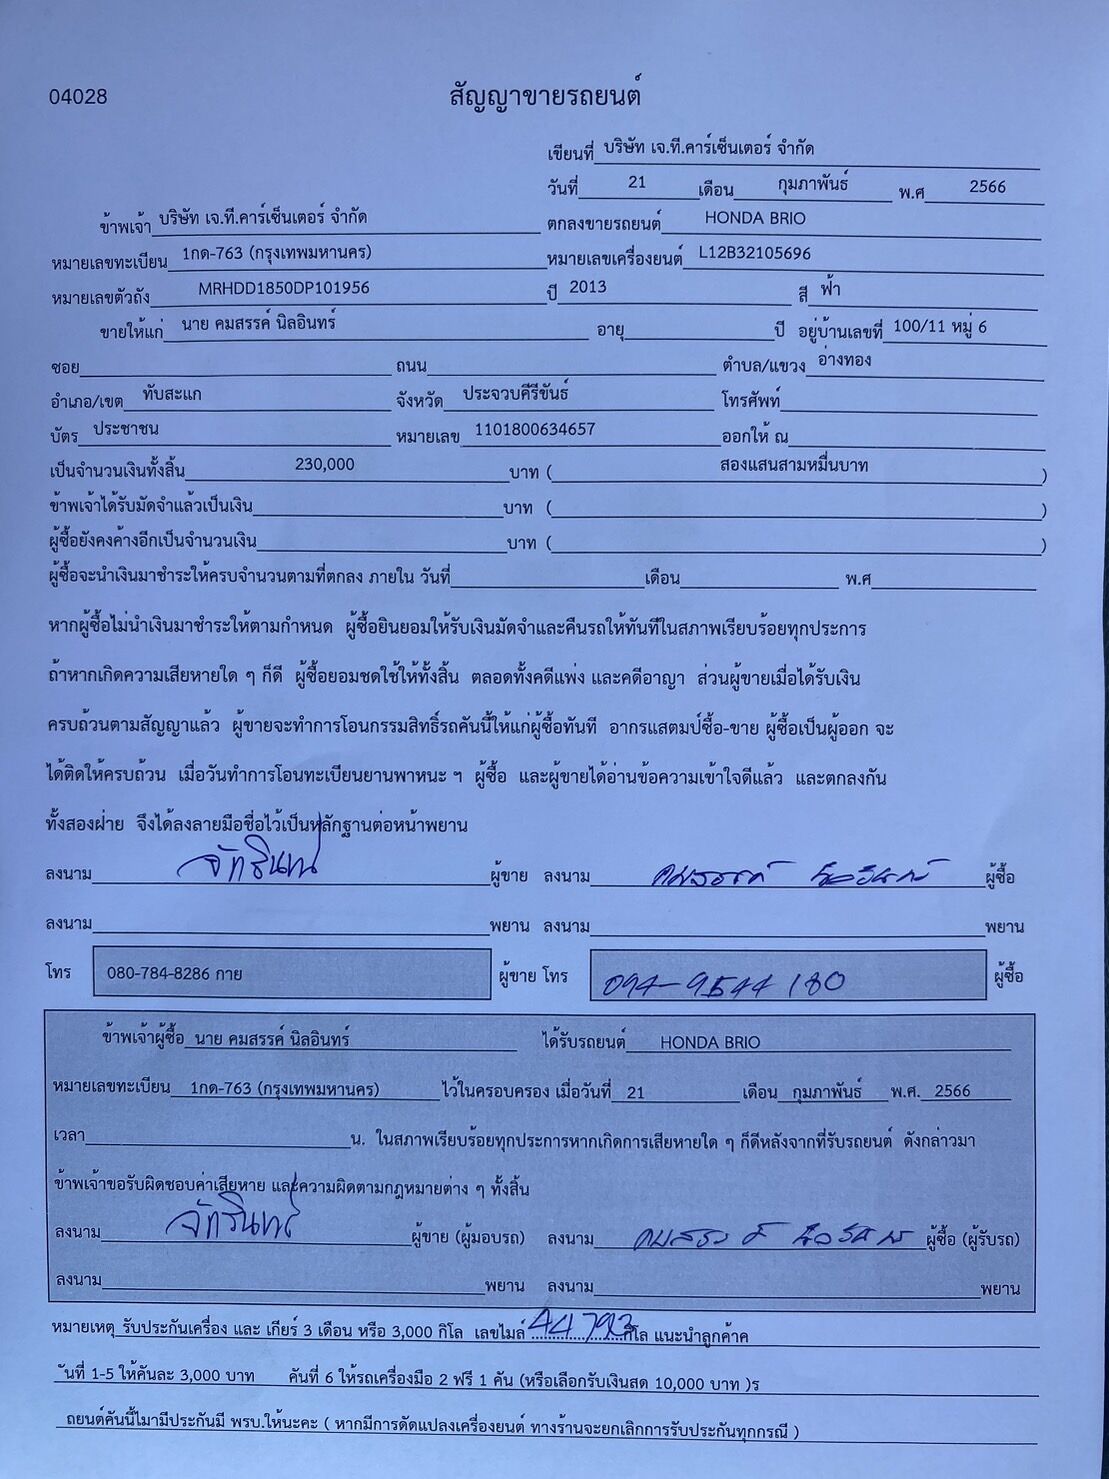 04028
สัญญาขายรถยนต์
เขียนที่ บริษัท เจ.ที.คาร์เซ็นเตอร์ จำกัด
วันที่ 21 เดือน กุมภาพันธ์ พ.ศ 2566
ข้าพเจ้า บริษัท เจ.ที.คาร์เซ็นเตอร์ จำกัด ตกลงขายรถยนต์ HONDA BRIO
หมายเลขทะเบียน 1กด-763 (กรุงเทพมหานคร) หมายเลขเครื่องยนต์ L12B32105696
หมายเลขตัวถัง MRHDD1850DP101956 ปี 2013 สี ฟ้า
ขายให้แก่ นาย คมสรรค์ นิลอินทร์ อายุ ปี อยู่บ้านเลขที่ 100/11 หมู่ 6
ซอย ถนน ตำบล/แขวง อ่างทอง
อำเภอ/เขต ทับสะแก จังหวัด ประจวบคีรีขันธ์ โทรศัพท์
บัตร ประชาชน หมายเลข 1101800634657 ออกให้ ณ
เป็นจำนวนเงินทั้งสิ้น 230,000 บาท ( สองแสนสามหมื่นบาท )
ข้าพเจ้าได้รับมัดจำแล้วเป็นเงิน บาท ( )
ผู้ซื้อยังคงค้างอีกเป็นจำนวนเงิน บาท ( )
ผู้ซื้อจะนำเงินมาชำระให้ครบจำนวนตามที่ตกลง ภายใน วันที่ เดือน พ.ศ
หากผู้ซื้อไม่นำเงินมาชำระให้ตามกำหนด ผู้ซื้อยินยอมให้รับเงินมัดจำและคืนรถให้ทันทีในสภาพเรียบร้อยทุกประการ
ถ้าหากเกิดความเสียหายใด ๆ ก็ดี ผู้ซื้อยอมชดใช้ให้ทั้งสิ้น ตลอดทั้งคดีแพ่ง และคดีอาญา ส่วนผู้ขายเมื่อได้รับเงิน
ครบถ้วนตามสัญญาแล้ว ผู้ขายจะทำการโอนกรรมสิทธิ์รถคันนี้ให้แก่ผู้ซื้อทันที อากรแสตมป์ซื้อ-ขาย ผู้ซื้อเป็นผู้ออก จะ
ได้ติดให้ครบถ้วน เมื่อวันทำการโอนทะเบียนยานพาหนะ ฯ ผู้ซื้อ และผู้ขายได้อ่านข้อความเข้าใจดีแล้ว และตกลงกัน
ทั้งสองฝ่าย จึงได้ลงลายมือชื่อไว้เป็นหลักฐานต่อหน้าพยาน
ลงนาม ผู้ขาย ลงนาม คมสรรค์ นิลอินทร์ ผู้ซื้อ
ลงนาม พยาน ลงนาม พยาน
โทร 080-784-8286 กาย ผู้ขาย โทร 094-9544180 ผู้ซื้อ
ข้าพเจ้าผู้ซื้อ นาย คมสรรค์ นิลอินทร์ ได้รับรถยนต์ HONDA BRIO
หมายเลขทะเบียน 1กด-763 (กรุงเทพมหานคร) ไว้ในครอบครอง เมื่อวันที่ 21 เดือน กุมภาพันธ์ พ.ศ. 2566
เวลา น. ในสภาพเรียบร้อยทุกประการหากเกิดการเสียหายใด ๆ ก็ดีหลังจากที่รับรถยนต์ ดังกล่าวมา
ข้าพเจ้าขอรับผิดชอบค่าเสียหาย และความผิดตามกฎหมายต่าง ๆ ทั้งสิ้น
ลงนาม ผู้ขาย (ผู้มอบรถ) ลงนาม คมสรรค์ นิลอินทร์ ผู้ซื้อ (ผู้รับรถ)
ลงนาม พยาน ลงนาม พยาน
หมายเหตุ รับประกันเครื่อง และ เกียร์ 3 เดือน หรือ 3,000 กิโล เลขไมล์ 44793 กิโล แนะนำลูกค้าค
ันที่ 1-5 ให้คันละ 3,000 บาท คันที่ 6 ให้รถเครื่องมือ 2 ฟรี 1 คัน (หรือเลือกรับเงินสด 10,000 บาท )ร
ถยนต์คันนี้ไมามีประกันมี พรบ.ให้นะคะ ( หากมีการดัดแปลงเครื่องยนต์ ทางร้านจะยกเลิกการรับประกันทุกกรณี )